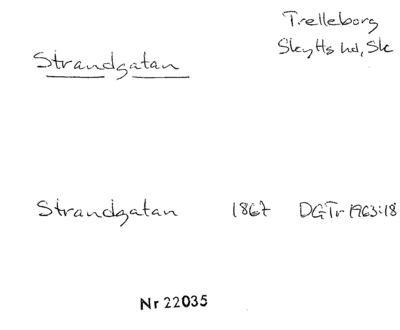 Trelleborg
Skytts hd, Sk
Strandgatan
Strandgatan 1867 DGTr 1963:18
Nr 22035